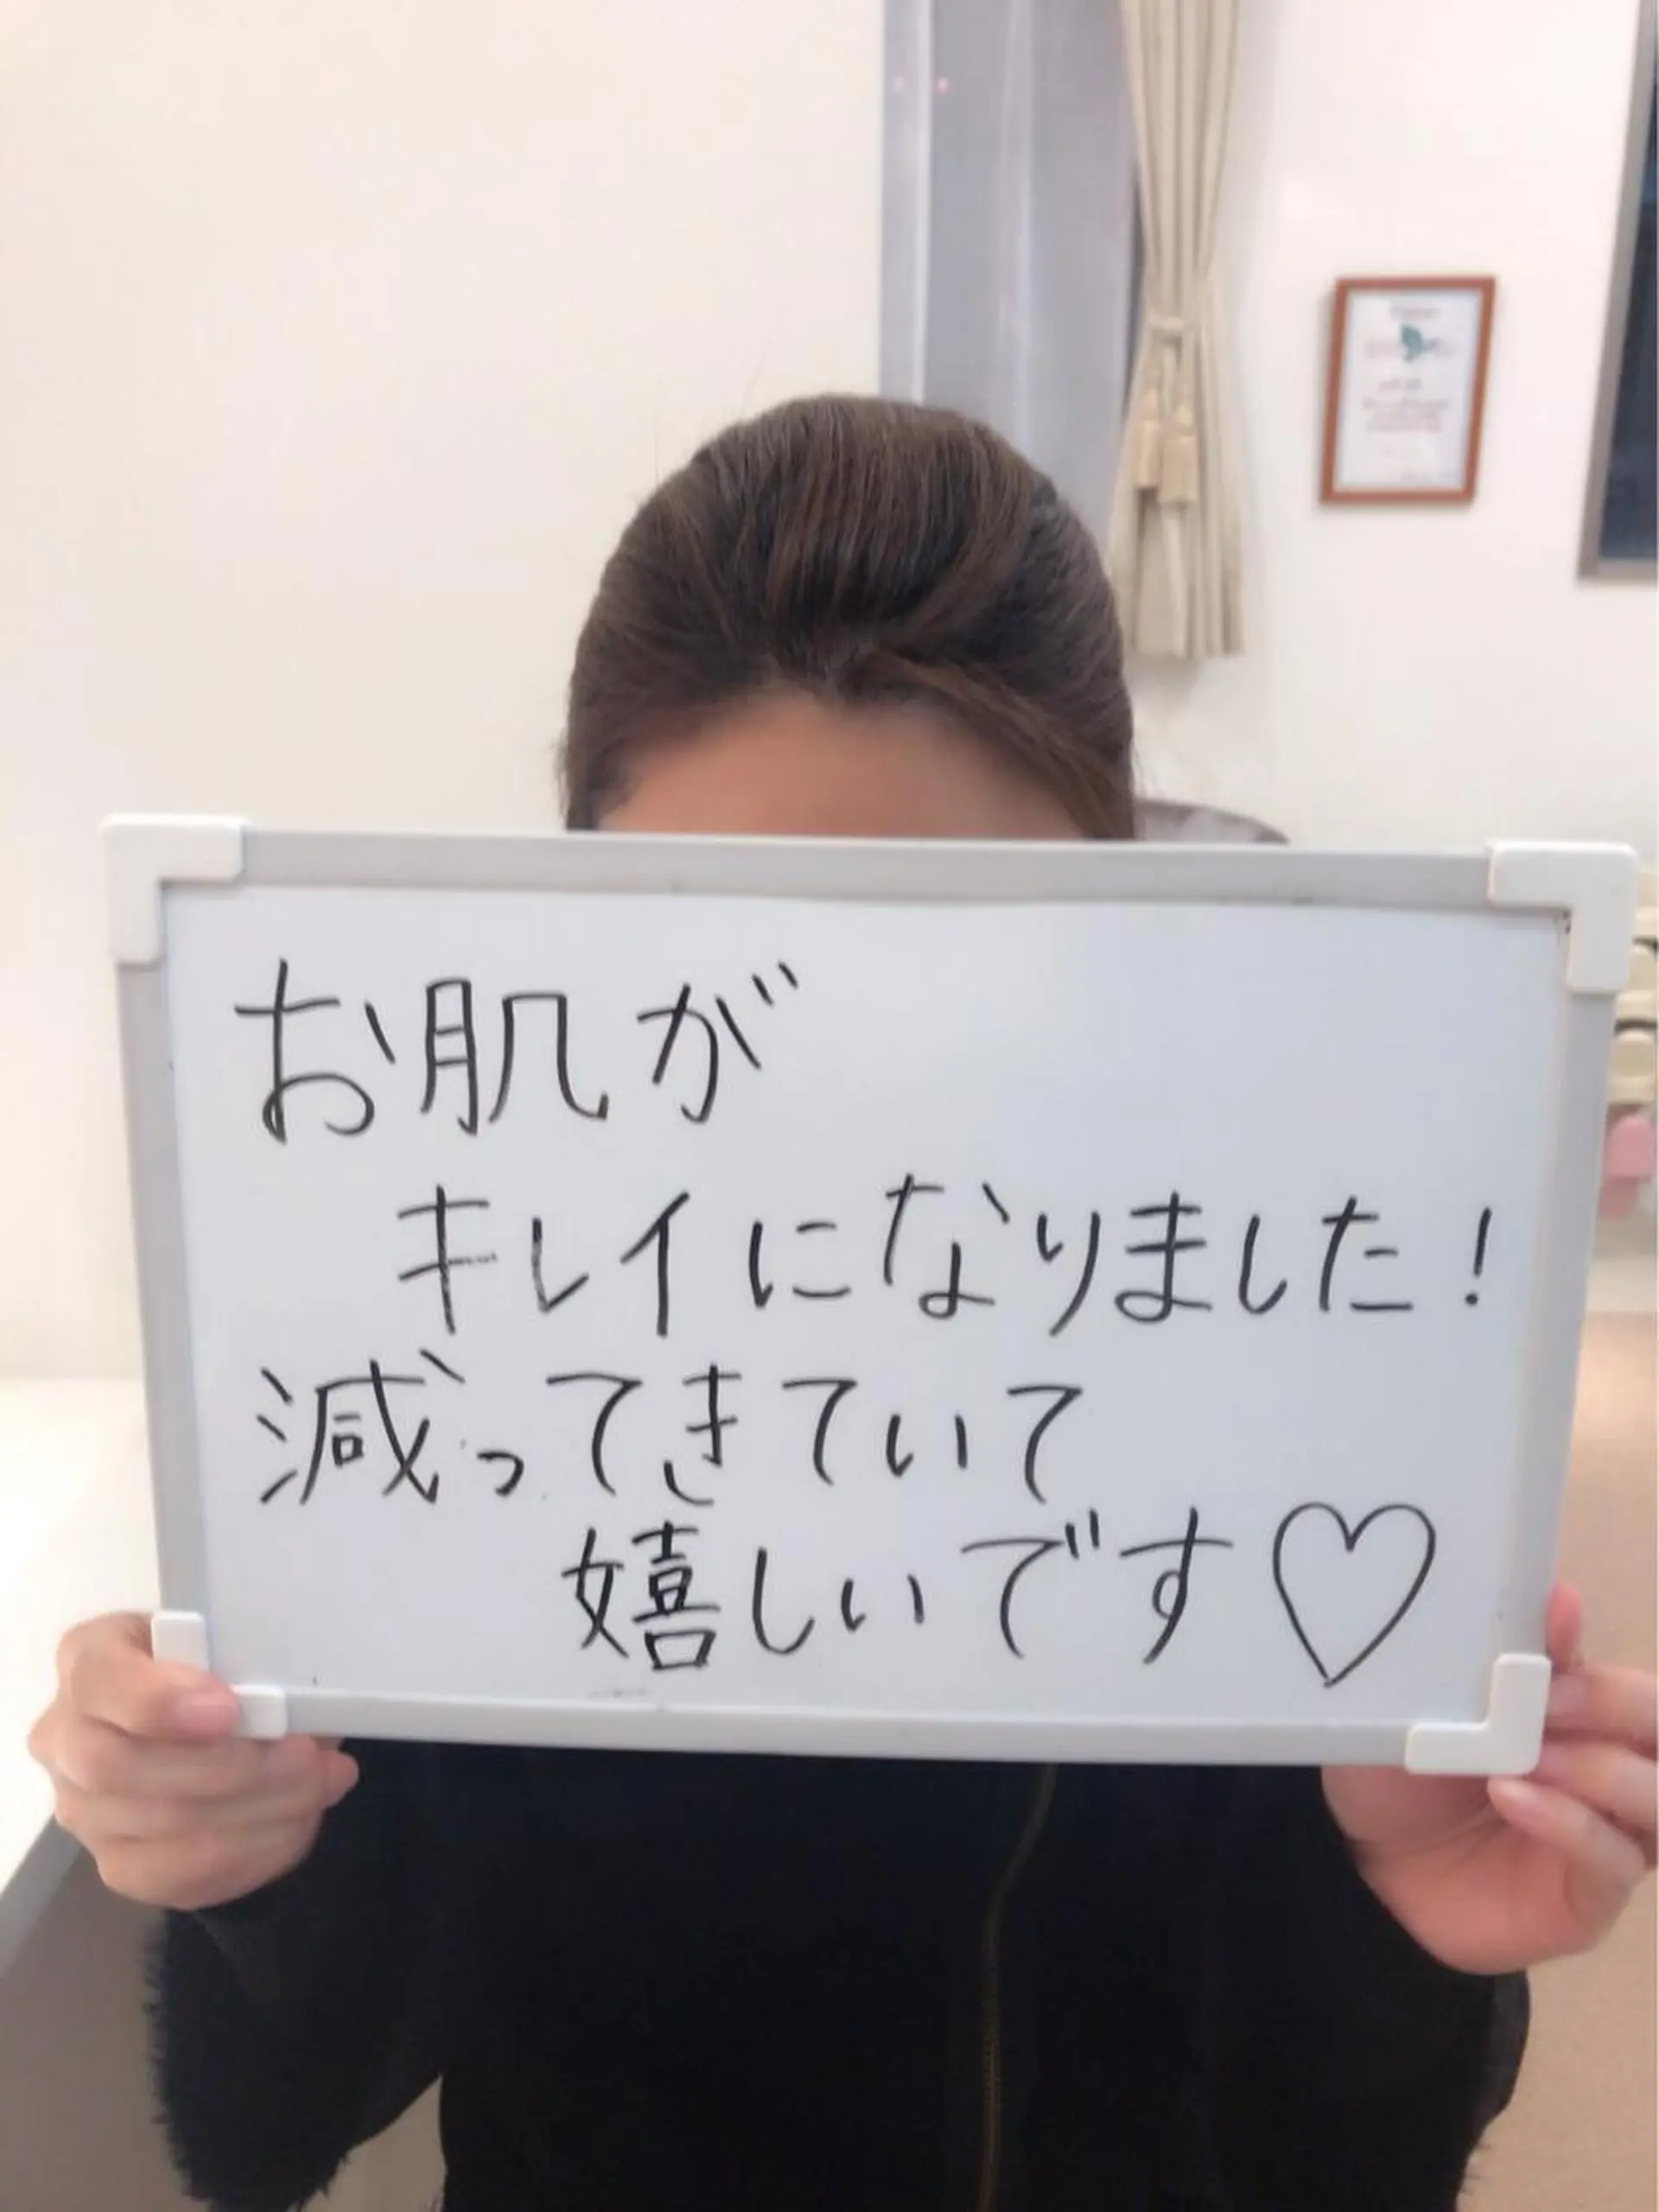 お肌が
キレイになりました！
減ってきていて
嬉しいです♡